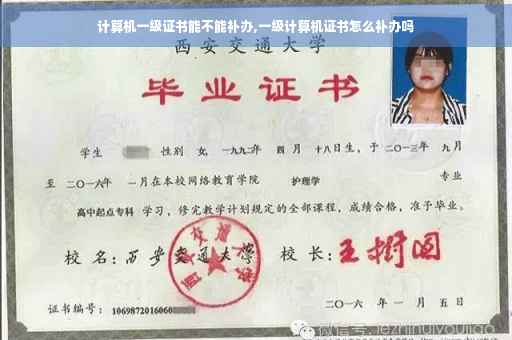 计算机一级证书能不能补办,一级计算机证书怎么补办吗
西安交通大学
毕业证书
学生 性别 女, 一九九二年 四月 十八日生, 于 二〇一三年 九月
至 二〇一六年 一月在本校网络教育学院 护理学 专业
高中起点专科 学习, 修完教学计划规定的全部课程, 成绩合格, 准予毕业。
校 名: 西安交通大学 校 长: 王树国
西安交通大学
证书编号: 1069872016060
二〇一六 年 一 月 五 日
微信号: jezhinuiyoujiao